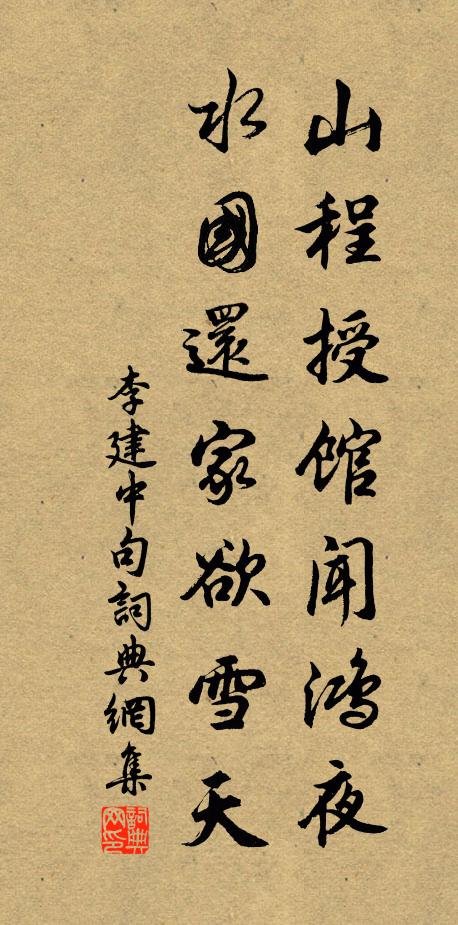 山程授館闻鸿夜
水國還家欲雪天
李建中句詞典網集
詞典网印